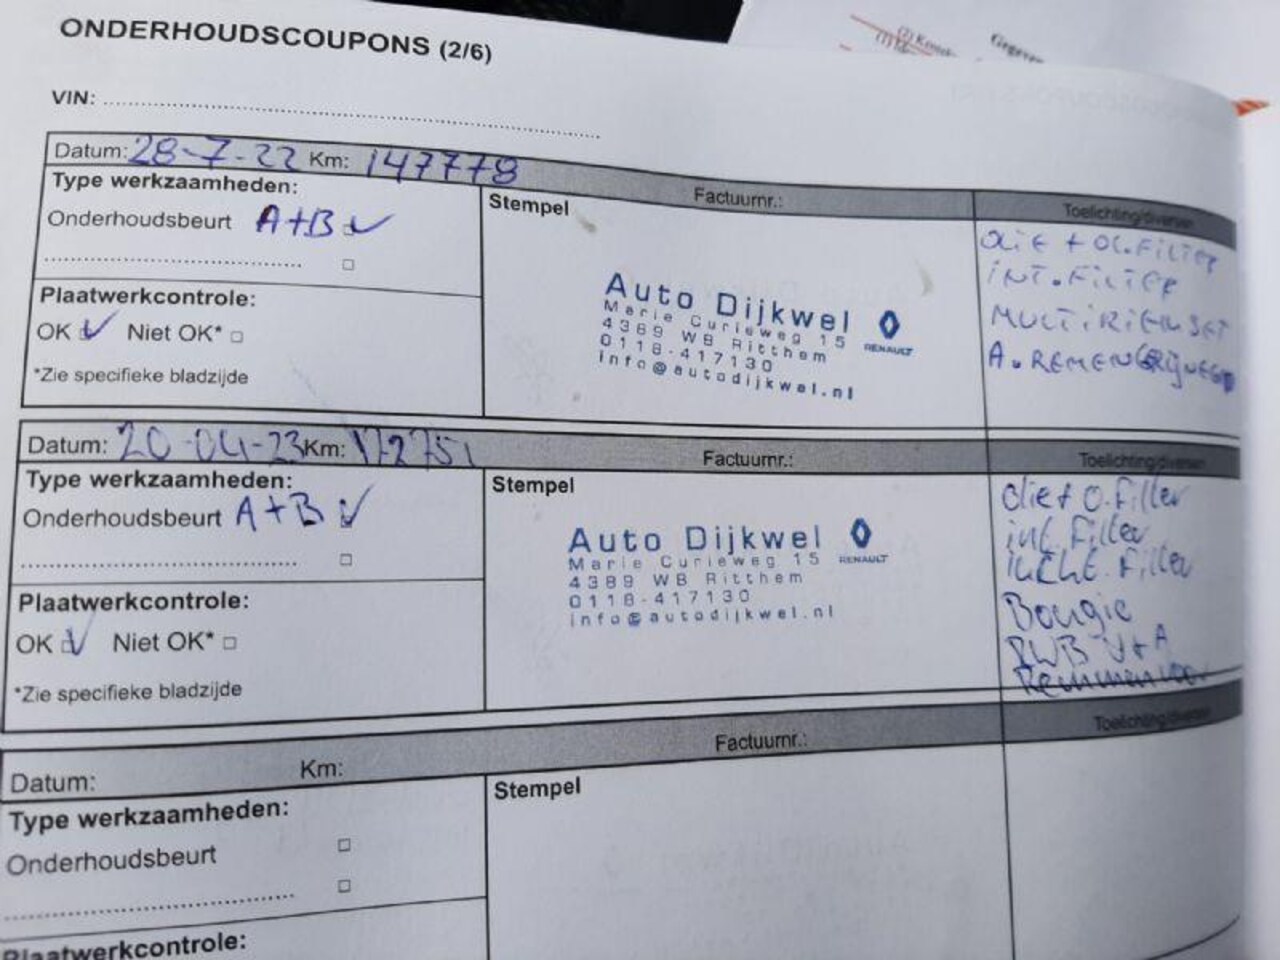 ONDERHOUDSCOUPONS (2/6)
VIN:
Datum: 28-7-22 Km: 147778
Factuurnr.:
Toelichting/diversen
Type werkzaamheden:
Onderhoudsbeurt A+B
Plaatwerkcontrole:
OK Niet OK*
*Zie specifieke bladzijde
Stempel
Auto Dijkwel
Marie Curieweg 15
4389 WB Ritthem
0118-417130
info@autodijkwel.nl
RENAULT
OLIE + OL.FILTER
INT.FILTER
MULTIRIEMSET
A.REMEN
Datum: 20-04-23 Km: 172751
Factuurnr.:
Toelichting/diversen
Type werkzaamheden:
Onderhoudsbeurt A+B
Plaatwerkcontrole:
OK Niet OK*
*Zie specifieke bladzijde
Stempel
Auto Dijkwel
Marie Curieweg 15
4389 WB Ritthem
0118-417130
info@autodijkwel.nl
RENAULT
olie + o.filter
int. filter
lucht. filter
Bougie
RWB V+A
Remmen voor
Datum:
Km:
Factuurnr.:
Toelichting/diversen
Type werkzaamheden:
Onderhoudsbeurt
Plaatwerkcontrole:
Stempel